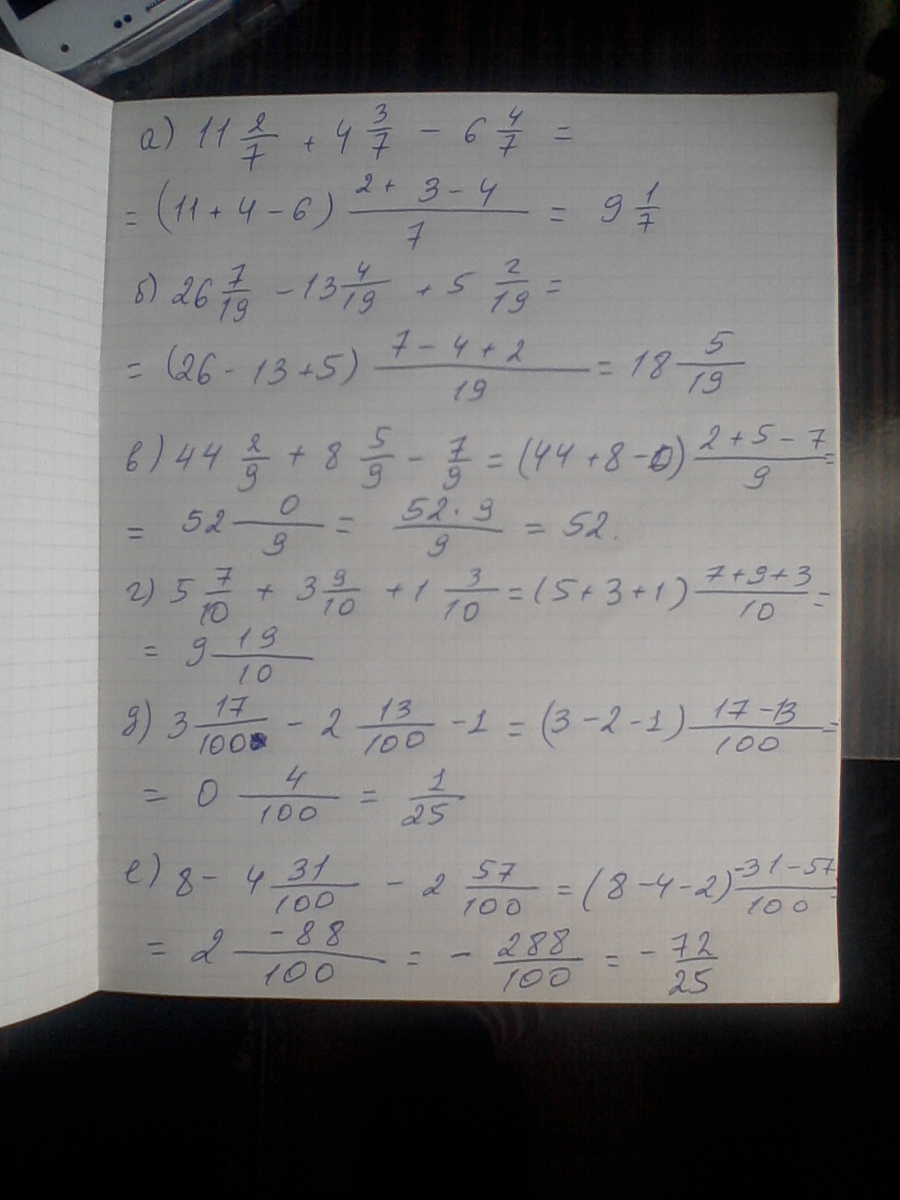 а) 11 2/7 + 4 3/7 - 6 4/7 =
= (11 + 4 - 6) (2 + 3 - 4)/7 = 9 1/7
б) 26 7/19 - 13 4/19 + 5 2/19 =
= (26 - 13 + 5) (7 - 4 + 2)/19 = 18 5/19
в) 44 2/9 + 8 5/9 - 7/9 = (44 + 8 - 0) (2 + 5 - 7)/9 =
= 52 0/9 = (52 · 9)/9 = 52.
г) 5 7/10 + 3 9/10 + 1 3/10 = (5 + 3 + 1) (7 + 9 + 3)/10 =
= 9 19/10
д) 3 17/100 - 2 13/100 - 1 = (3 - 2 - 1) (17 - 13)/100 =
= 0 4/100 = 1/25
е) 8 - 4 31/100 - 2 57/100 = (8 - 4 - 2) (-31 - 57)/100 =
= 2 -88/100 = - 288/100 = - 72/25